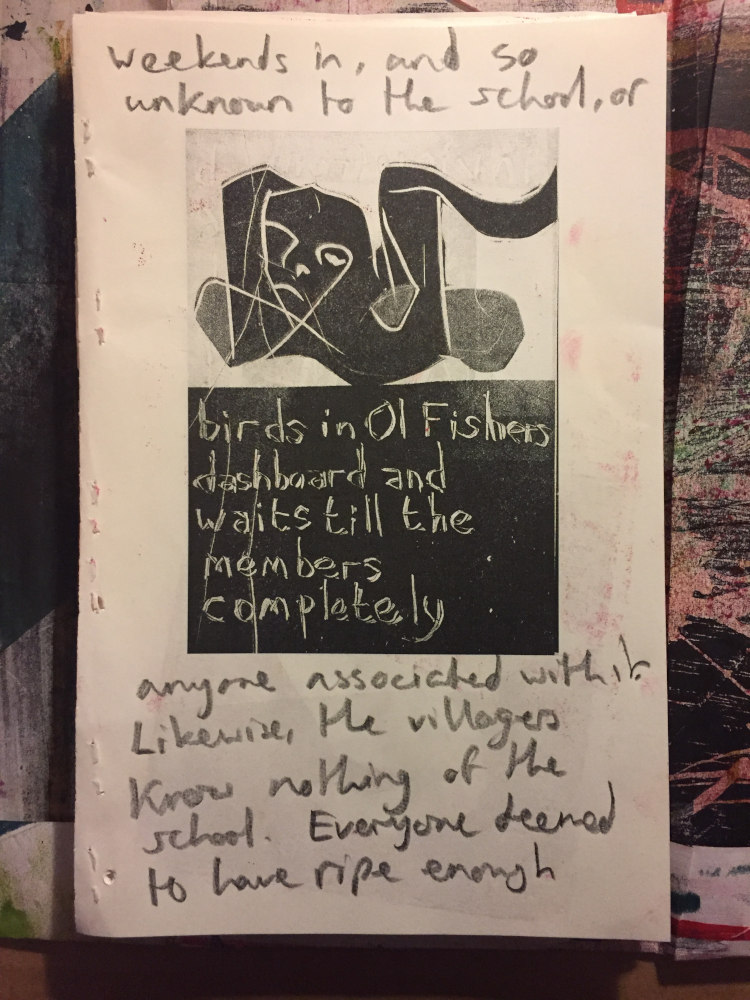 weekends in, and so
unknown to the school, or
birds in Ol Fishers
dashboard and
waits till the
members
completely
anyone associated with it.
Likewise, the villagers
know nothing of the
school. Everyone deemed
to have ripe enough